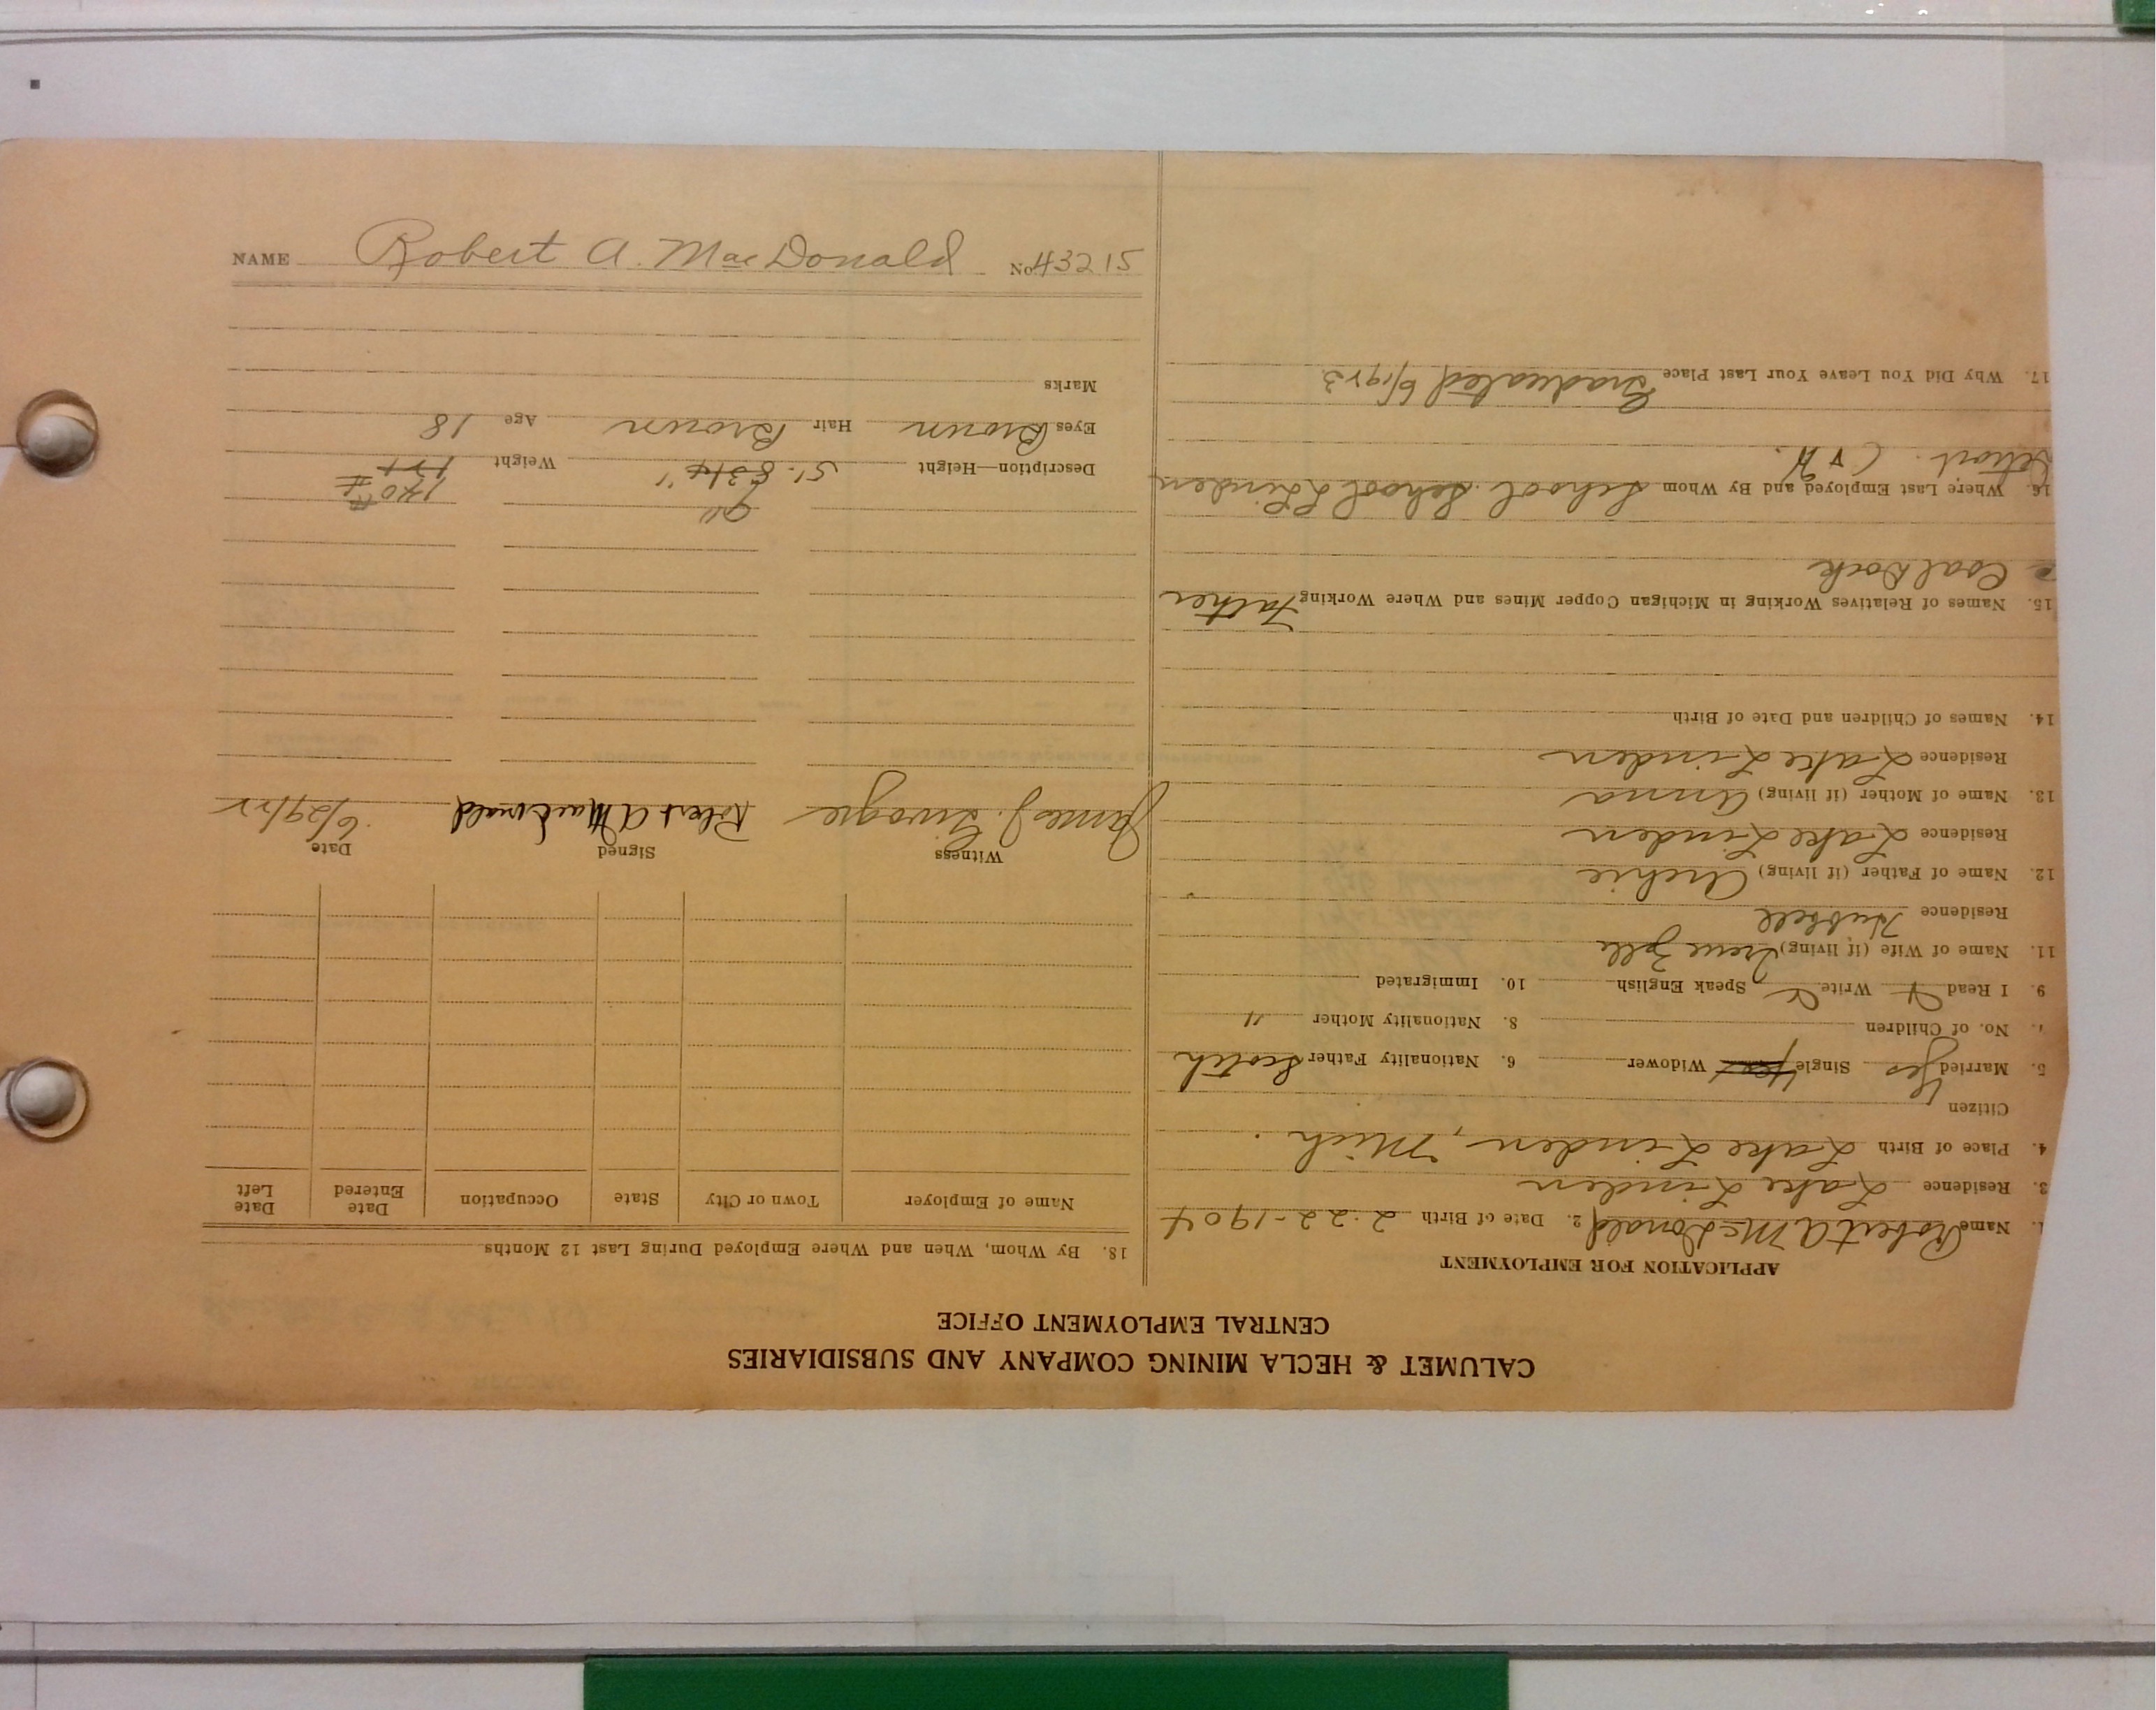 CALUMET & HECLA MINING COMPANY AND SUBSIDIARIES
CENTRAL EMPLOYMENT OFFICE
APPLICATION FOR EMPLOYMENT
1. Name Robert A McDonald 2. Date of Birth 2-22-1904
3. Residence Lake Linden
4. Place of Birth Lake Linden, Mich.
Citizen
5. Married Yes Single Widower 6. Nationality Father Scotch
7. No. of Children 8. Nationality Mother "
9. I Read Write Speak English 10. Immigrated
11. Name of Wife (if living) Irene
Residence Hubbell
12. Name of Father (if living) Archie
Residence Lake Linden
13. Name of Mother (if living) Anna
Residence Lake Linden
14. Names of Children and Date of Birth
15. Names of Relatives Working in Michigan Copper Mines and Where Working Father
Coal Dock
16. Where Last Employed and By Whom School. School L Linden
C & H.
17. Why Did You Leave Your Last Place Graduated
18. By Whom, When and Where Employed During Last 12 Months
Name of Employer Town or City State Occupation Date Entered Date Left
Witness Signed Date
James J. Robert A MacDonald 6/29/22
9" 140 #
Description—Height 5'- 8 3/4" Weight
Eyes Brown Hair Brown Age 18
Marks
NAME Robert A. MacDonald No. 43215